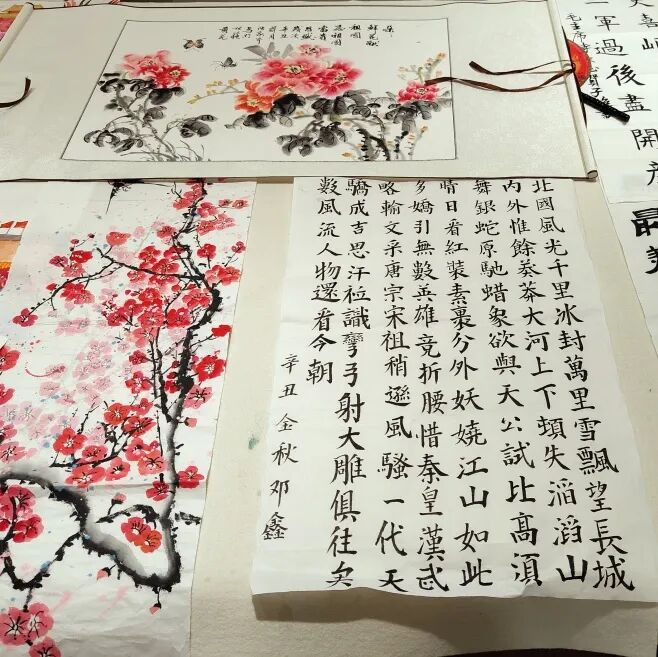 喜岷
軍過後盡開
毛主席
最美
鮮花獻
祖國
祖國
北國風光千里冰封萬里雪飄望長城
內外惟餘莽莽大河上下頓失滔滔山
舞銀蛇原馳蜡象欲與天公試比高須
晴日看紅裝素裹分外妖嬈江山如此
多嬌引無數英雄竞折腰惜秦皇漢武
略輸文采唐宗宋祖稍遜風騷一代天
驕成吉思汗祗識彎弓射大雕俱往矣
數風流人物還看今朝
辛丑金秋邓鑫